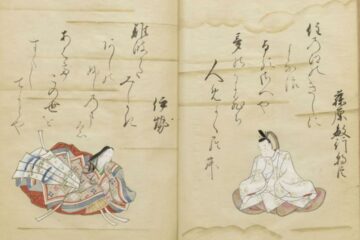 藤原敏行朝臣
住乃江のきしに
よる波
よるさへや
夢のかよひ路
人めよくらむ
伊勢
難波かた
みしかき
あしの
ふしのまも
あはて
この世を
すくし
てよとや